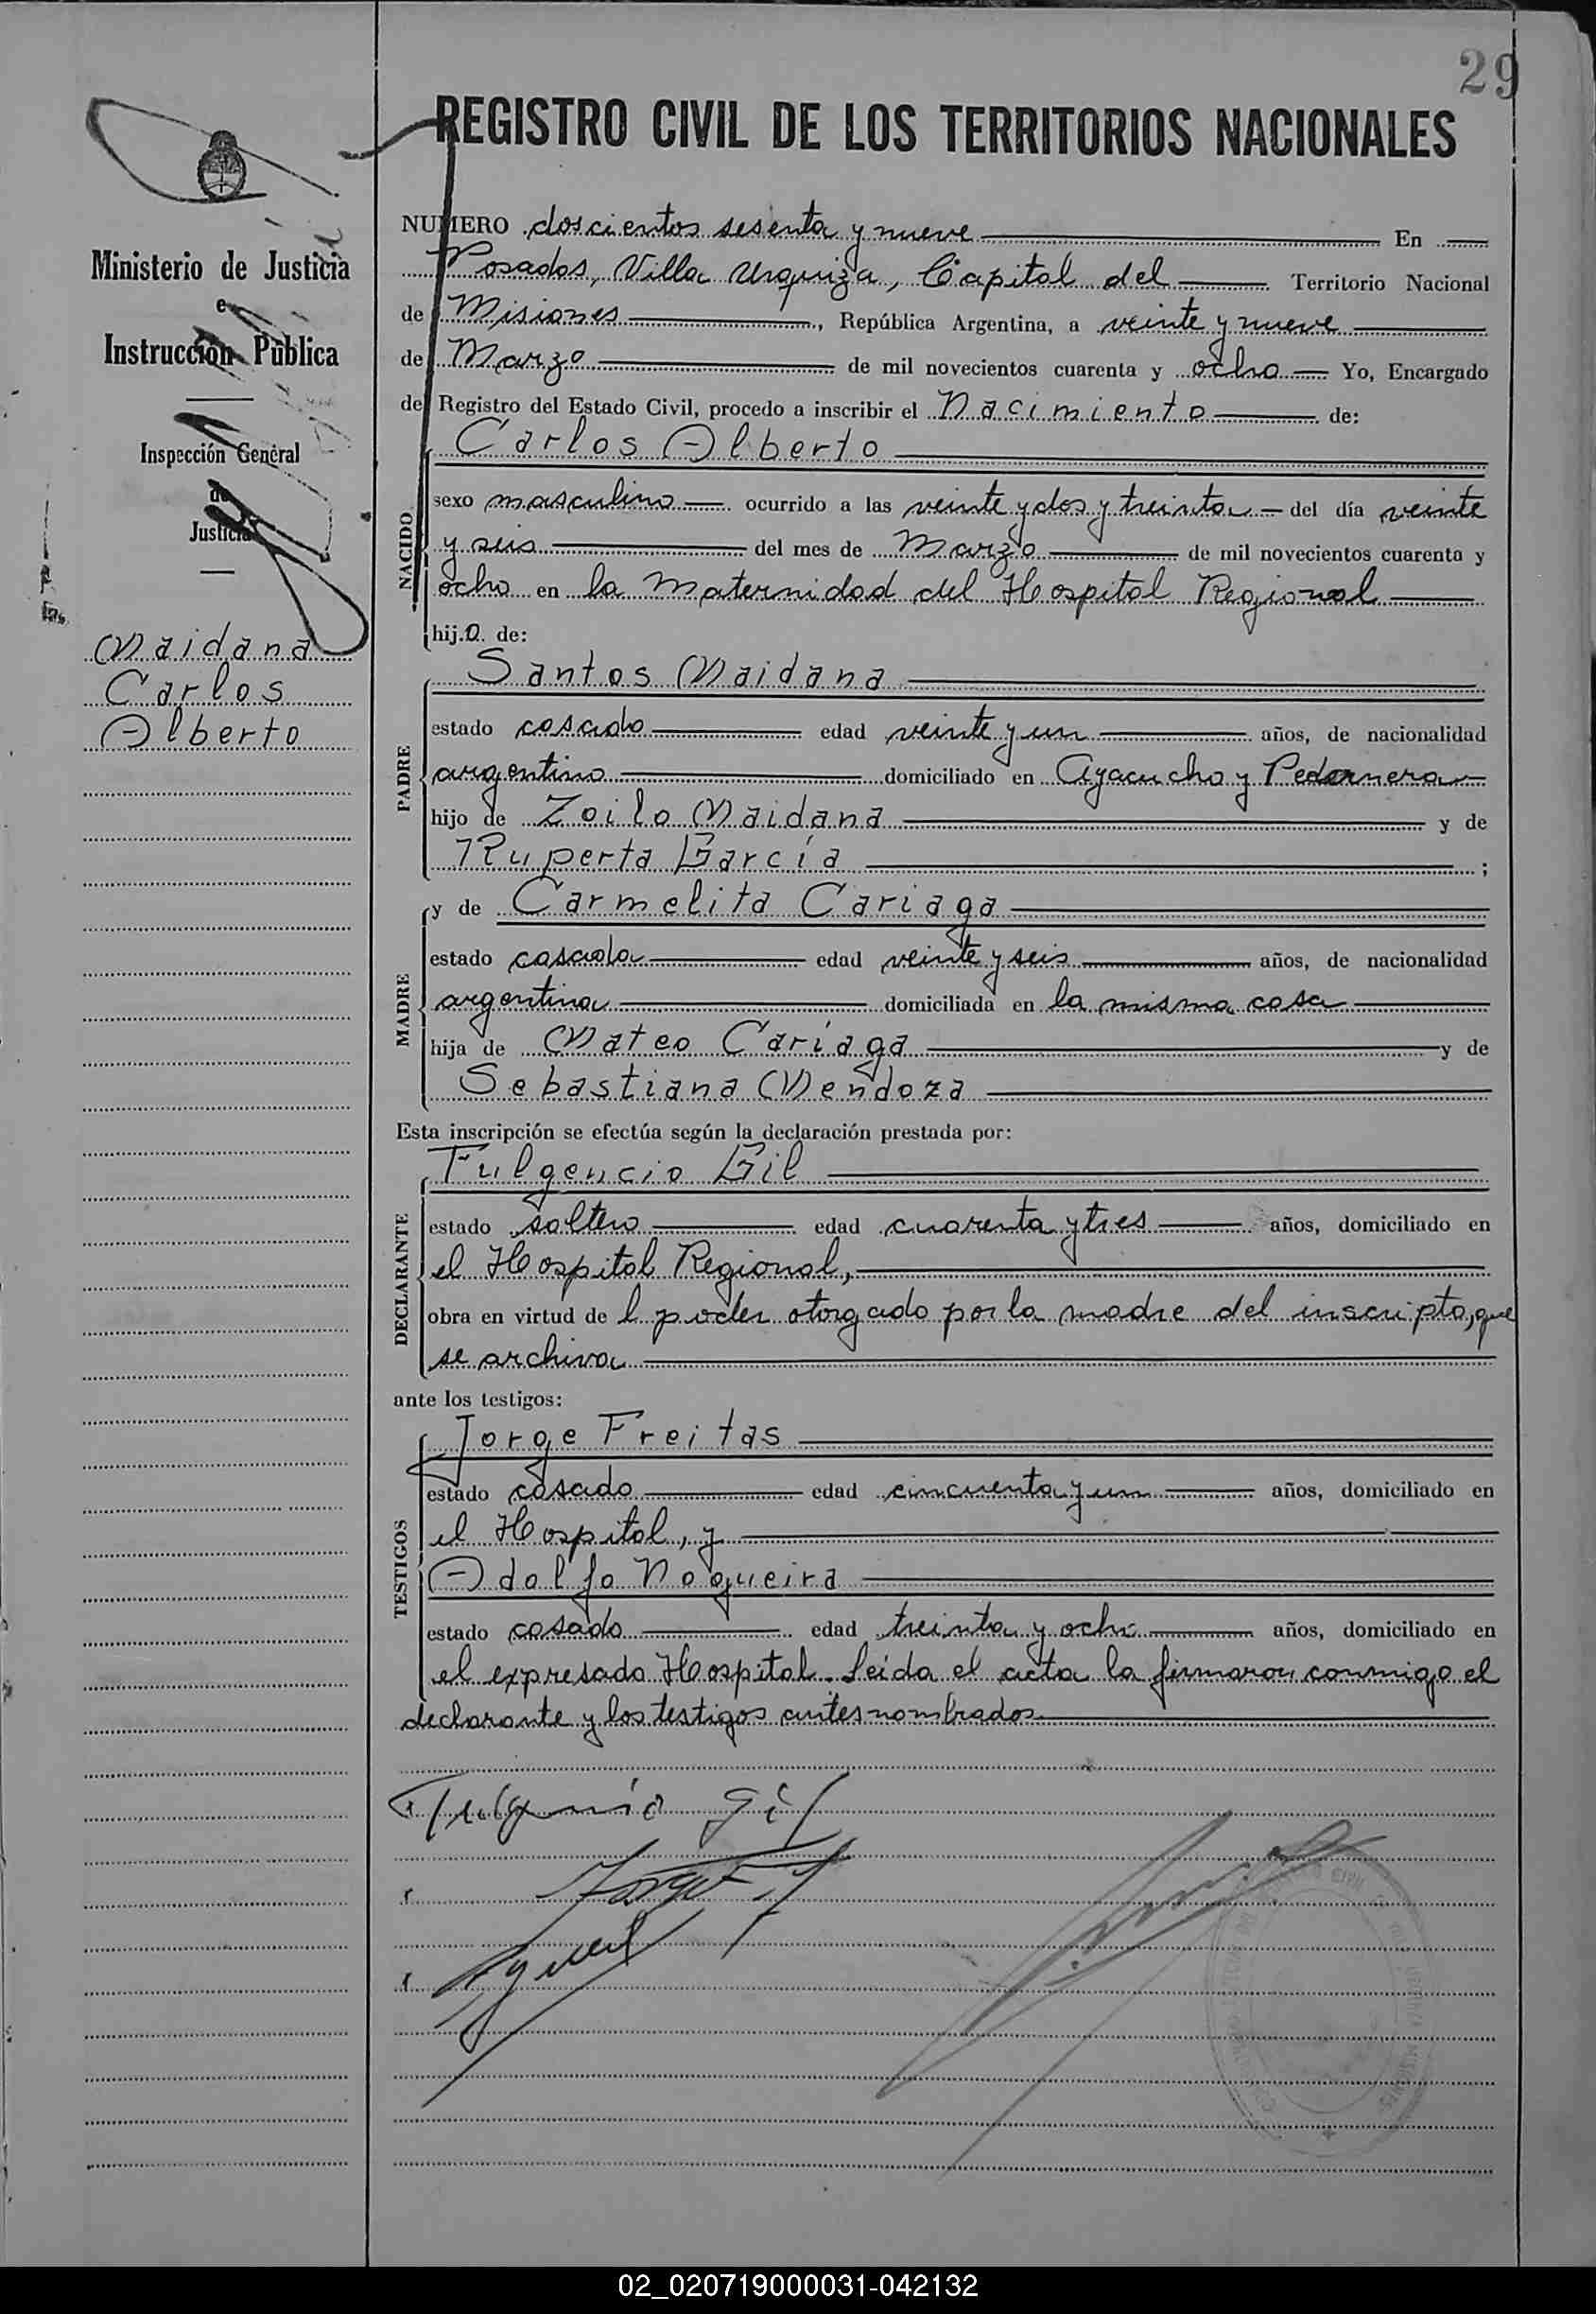 29
REGISTRO CIVIL DE LOS TERRITORIOS NACIONALES
Ministerio de Justicia
e
Instrucción Pública
Inspección General
de
Justicia
Maidana
Carlos
Alberto
NUMERO doscientos sesenta y nueve En
Posadas, Villa Urquiza, Capital del Territorio Nacional
de Misiones, República Argentina, a veinte y nueve
de Marzo de mil novecientos cuarenta y ocho Yo, Encargado
del Registro del Estado Civil, procedo a inscribir el Nacimiento de:
NACIDO
Carlos Alberto
sexo masculino ocurrido a las veinte y dos y treinta del día veinte
y seis del mes de Marzo de mil novecientos cuarenta y
ocho en la Maternidad del Hospital Regional
hijo de:
PADRE
Santos Maidana
estado casado edad veinte y un años, de nacionalidad
argentino domiciliado en Ayacucho y Pedernera
hijo de Zoilo Maidana y de
Ruperta García ;
MADRE
y de Carmelita Cariaga
estado casada edad veinte y seis años, de nacionalidad
argentina domiciliada en la misma casa
hija de Mateo Cariaga y de
Sebastiana Mendoza
Esta inscripción se efectúa según la declaración prestada por:
DECLARANTE
Fulgencio Gil
estado soltero edad cuarenta y tres años, domiciliado en
el Hospital Regional,
obra en virtud de l poder otorgado por la madre del inscripto, que
se archiva
ante los testigos:
TESTIGOS
Jorge Freitas
estado casado edad cincuenta y un años, domiciliado en
el Hospital, y
Adolfo Nogueira
estado casado edad treinta y ocho años, domiciliado en
el expresado Hospital. Leída el acta la firmaron conmigo el
declarante y los testigos antes nombrados
Fulgencio Gil
02_020719000031-042132